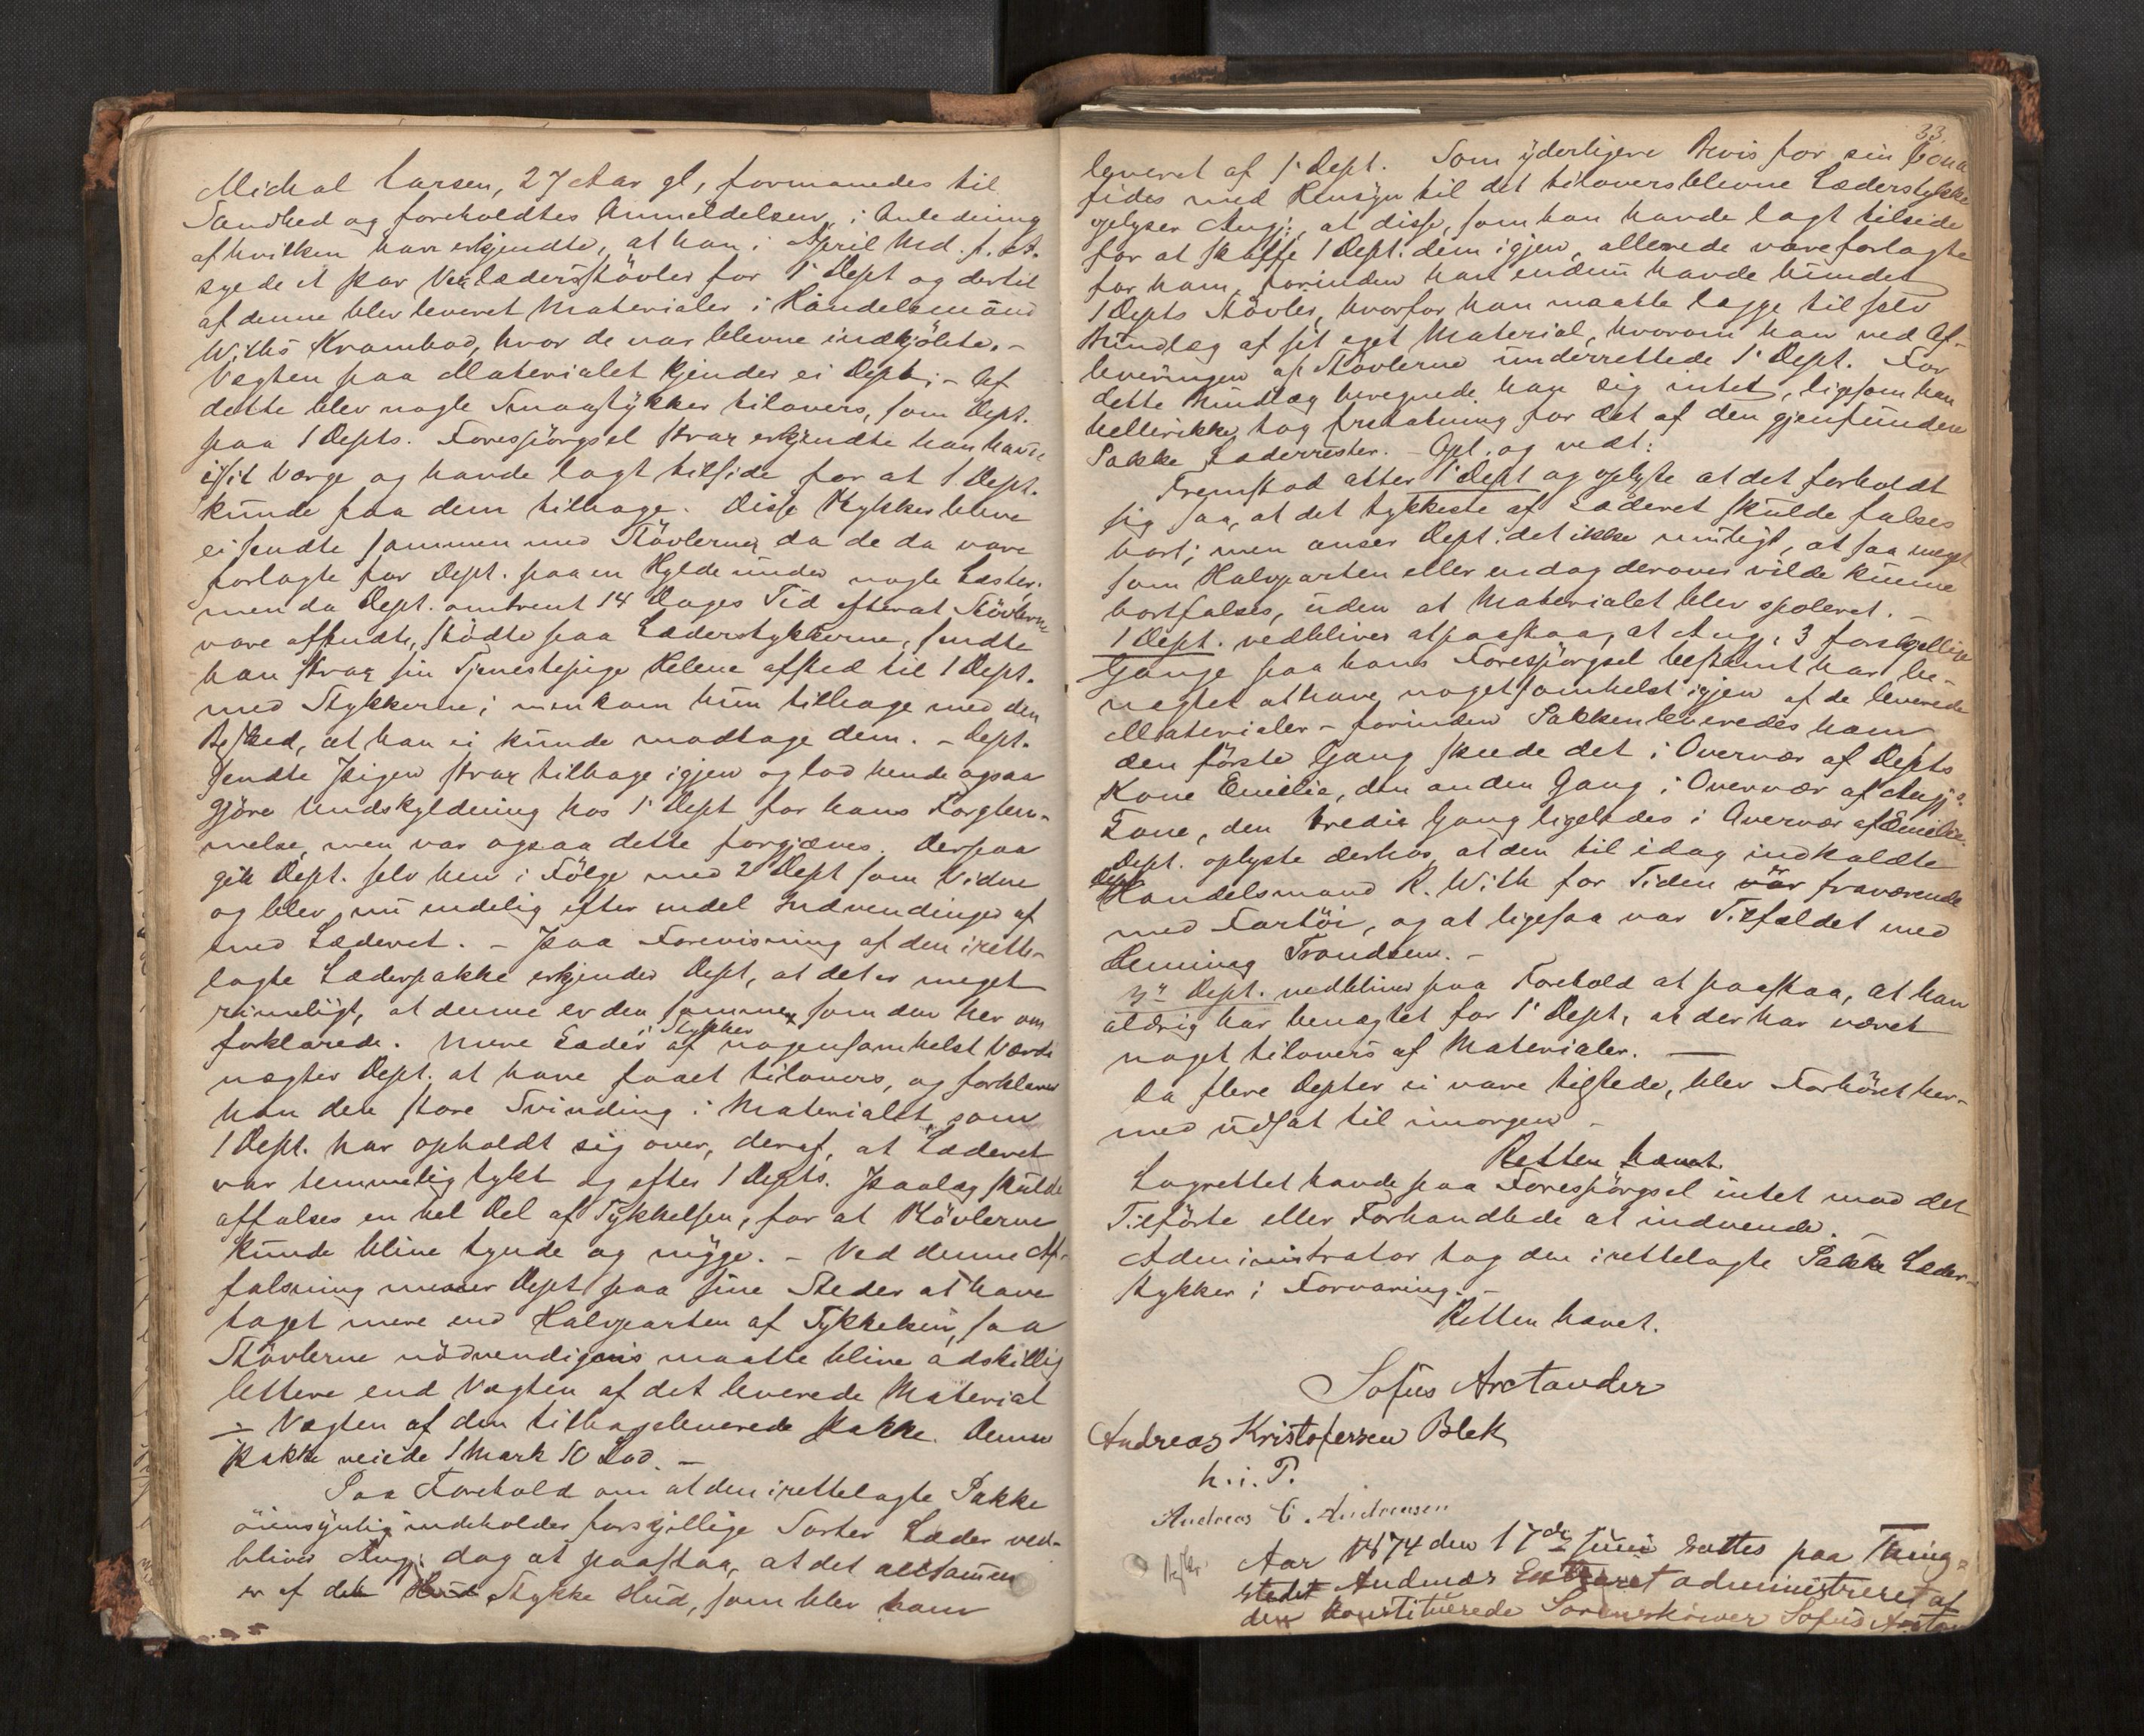 Michal Larsen, 27 Aar gl, formanedes til
Sandhed og foreholdtes Anmeldelsen, i Anledning
af hvilken han erkjendte, at han i April Md. f. A.
syede et par Værlædersstövler for 1' Dept og dertil
af denne blev leveret Materialer i Handelsmand
With's Krambod, hvor de var blevne indkjöbte. -
Vægten paa Materialet kjender ei Dept; - Af
dette blev nogle Smaastykker tilovers, som Dept.
paa 1 Depts. Forespörgsel strax erkjendte han havde
i sit Værge og havde lagt tilside for at 1 Dept.
kunde faa dem tilbage. Disse Stykker bleve
ei sendte sammen med Stövlerne, da de da vare
forlagte for Dept. paa en Hylde under nogle Læster;
men da Dept. omtrent 14 Dages Tid efterat Stövlerne
vare afsendte, stödte paa Læderstykkerne, sendte
han strax sin Tjenestepige Helene afsted til 1 Dept.
med Stykkerne; men kom hun tilbage med den
Besked, at han ei kunde modtage dem. - Dept.
sendte Pigen strax tilbage igjen og lod hende ogsaa
gjöre Undskyldning hos 1' Dept for hans Forglem-
melse, men var ogsaa dette forgjæves. Derpaa
gik Dept. selv hen i Fölge med 2 Dept som Vidne
og blev nu endelig efter endel Indvendinger af
med Læderet. - Paa Forevisning af den irette-
lagte Læderpakke erkjender Dept, at det er meget
rimeligt, at denne er den samme, som den her om
forklarede. Mere Læder i Stykker af nogensomhelst Værdi
nægter Dept. at have faaet tilovers, og forklarer
han den store Svinding i Materialet, som
1 Dept. har opholdt sig over, deraf, at Læderet
var temmelig tykt og efter 1 Depts. Paalæg skulde
affalses en hel Del af Tykkelsen, for at Stövlerne
kunde blive tynde og mygge. - Ved denne Af-
falsning mener Dept paa sine Steder at have
taget mere end Halvparten af Tykkelsen, saa
Stövlerne nödvendigvis maatte blive adskillig
lettere end Vægten af det leverede Material
÷ Vægten af den tilbageleverede Pakke. Denne
Pakke veiede 1 Mark 10 Lod. -
Paa Forehold om at den irettelagte Pakke
öiensynlig indeholder forskjellige Sorter Læder ved-
bliver Ang: dog at paastaa, at det altsammen
er af det Stykke Hud, som blev ham
33
leveret af 1' Dept. Som yderligere Bevis for sin bona
fides med Hensyn til det tiloversblevne Læderstykke
oplyser Ang:, at disse, som han havde lagt tilside
for at skaffe 1 Dept. dem igjen, allerede vare forlagte
for ham, forinden han endnu havde bundet
1 Depts Stövler, hvorfor han maatte lægge til selv
Bindlæg af sit eget Material, hvorom han ved Af-
leveringen af Stövlerne underrettede 1' Dept. For
dette Bindlæg beregnede han sig intet, ligesom han
hellerikke tog Erstatning for det af den gjenfundne
Pakke Læderrester. - Opl. og vedt:
Fremstod atter 1' Dept og oplyste at det forholdt
sig saa, at det tykkeste af Læderet skulde falses
bort; men anser Dept. det ikke muligt, at saa meget
som Halvparten eller endog derover vilde kunne
bortfalses, uden at Materialet blev spoleret. -
1 Dept. vedbliver at paastaa, at Ang. 3 forskjellige
Gange paa hans Forespörgsel bestemt har be-
nægtet at have noget somhelst igjen af de leverede
Materialer - forinden Pakken leveredes ham
den förste Gang skede det i Overvær af Depts
Kone Emilie, den anden Gang i Overvær af Ang's
Kone, den tredie Gang ligeledes i Overvær af Emilie.
Dept. oplyste derhos, at den til idag indkaldte
Handelsmand R. With for Tiden var fraværende
med Fartöi, og at ligesaa var Tilfældet med
Henning Trondsen. -
3' Dept. vedbliver paa Forehold at paastaa, at han
aldrig har benægtet for 1' Dept. at der har været
noget tilovers af Materialer. -
Da flere Depter ei vare tilstede, blev Forhöret her-
med udsat til imorgen -
Retten hævet.
Lagrettet havde paa Forespörgsel intet mod det
Tilförte eller Forhandlede at indvende. -
Administrator tog den irettelagte Pakke Læder-
stykker i Forvaring. -
Retten hævet.
Sofus Arctander
Andreas Kristofersen Blek
h. i. P.
Andreas C. Andreasen
Aar 1874 den 17de Juni sattes paa Thing-
stedet Andenæs Extraret administreret af
den konstituerede Sorenskriver Sofus Arctan